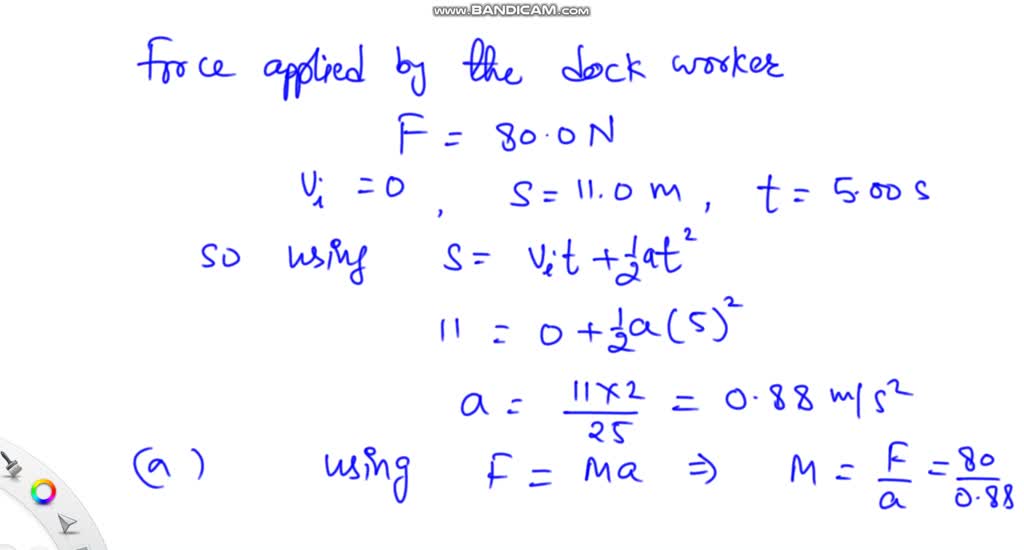 www.BANDICAM.com
Force applied by the dock worker
F = 80.0 N
Vi = 0 , S = 11.0 m , t = 5.00 s
so using S = Vit + 1/2 at²
11 = 0 + 1/2 a (5)²
a = 11×2/25 = 0.88 m/s²
(a) using F = Ma ⇒ M = F/a = 80/0.88